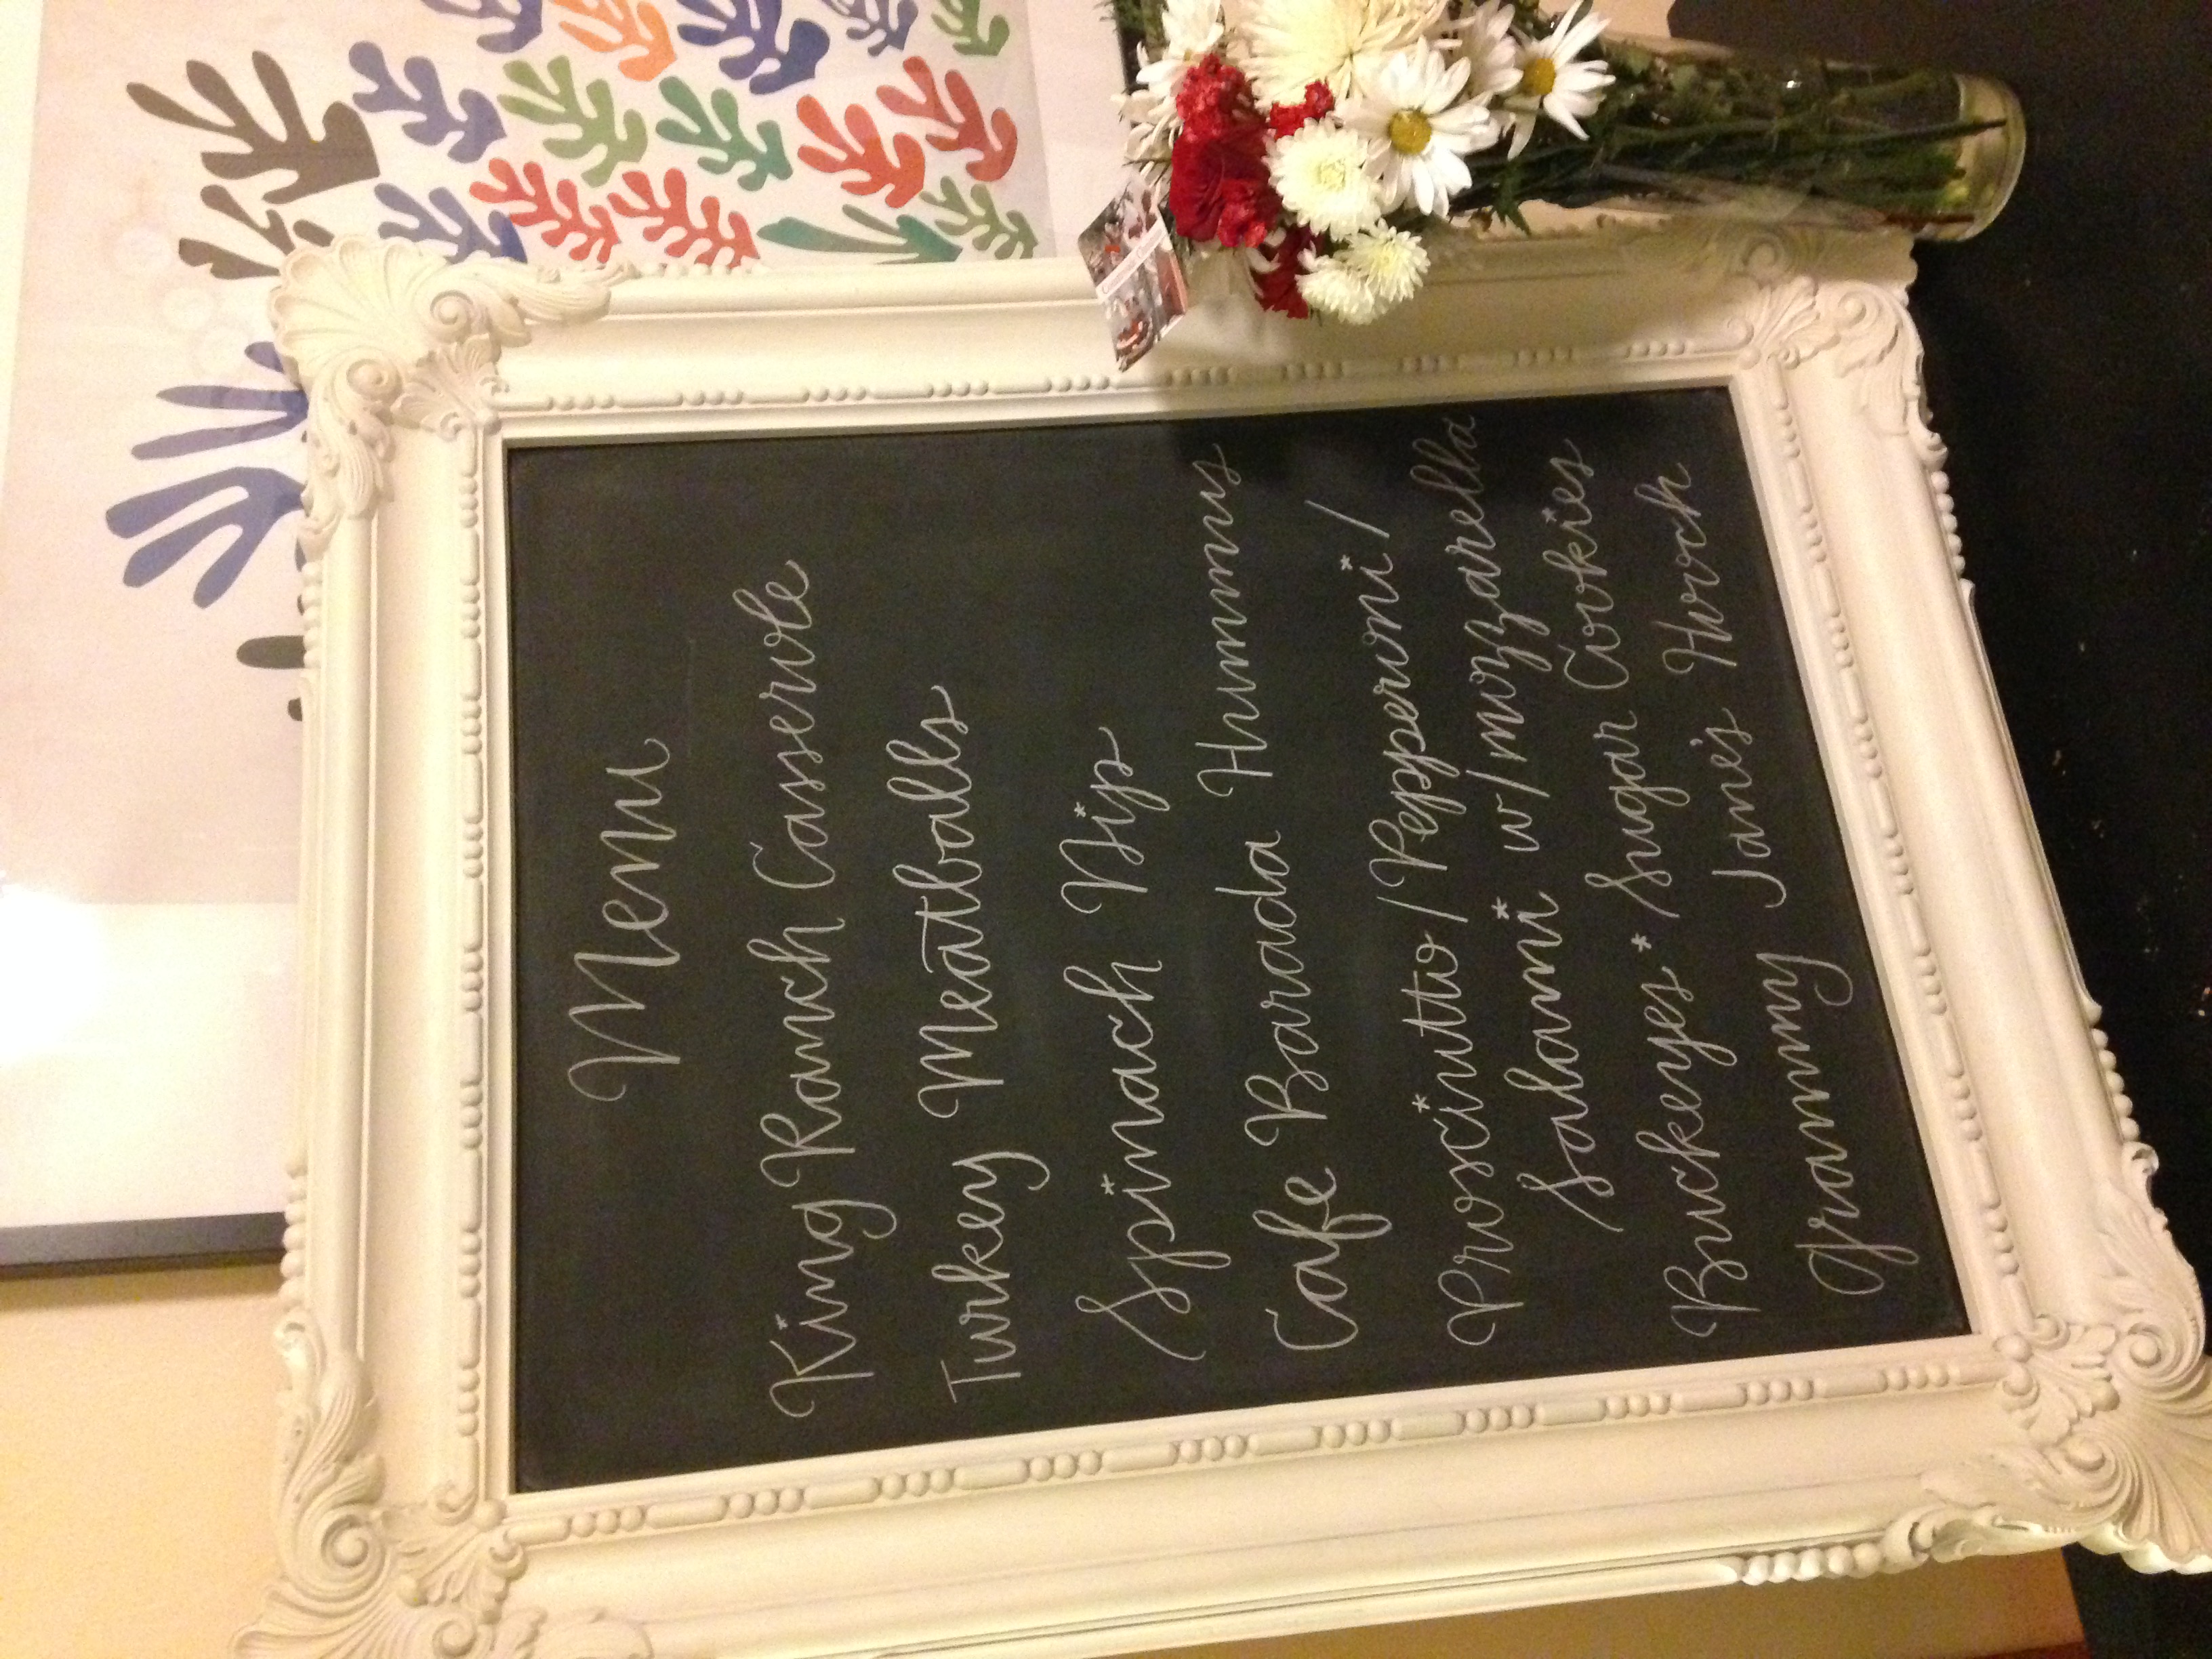 Menu
King Ranch Casserole
Turkey Meatballs
Spinach Dip
Cafe Barada Hummus
Prosciutto / Pepperoni /
Salami w/ mozzarella
Buckeyes * Sugar Cookies
Grammy Jane's Hooch